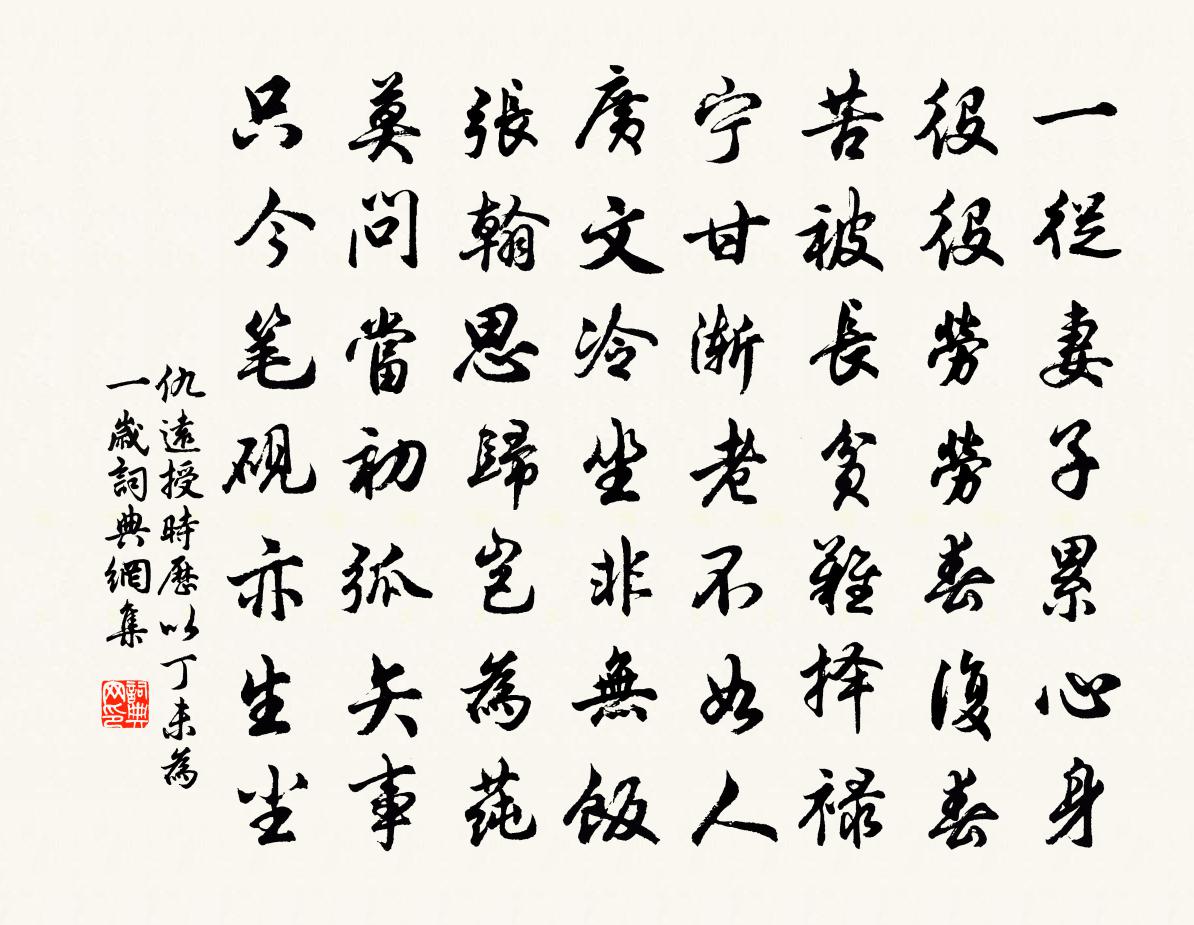 一從妻子累心身
役役勞勞春復春
苦被長貧難择禄
宁甘漸老不如人
廣文冷坐非無飯
張翰思歸豈為莼
莫問當初弧矢事
只今笔砚亦生尘
仇遠授時歷以丁未為
一歲詞典網集
詞典网印